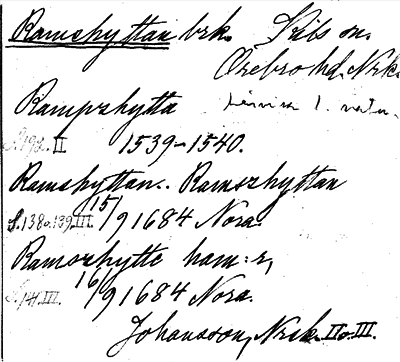 Ramshyttan brk. Kils sn.
Örebro hd. Nrk.
Rampzhytta
S. 192. II 1539–1540.
Ramshyttan.. Ramszhyttan
S. 138 o. 139. III. 15/9 1684 Nora.
Ramszhytte ham:r,
S. 141. III. 16/9 1684 Nora.
Johansson, Nrsk. II o. III.